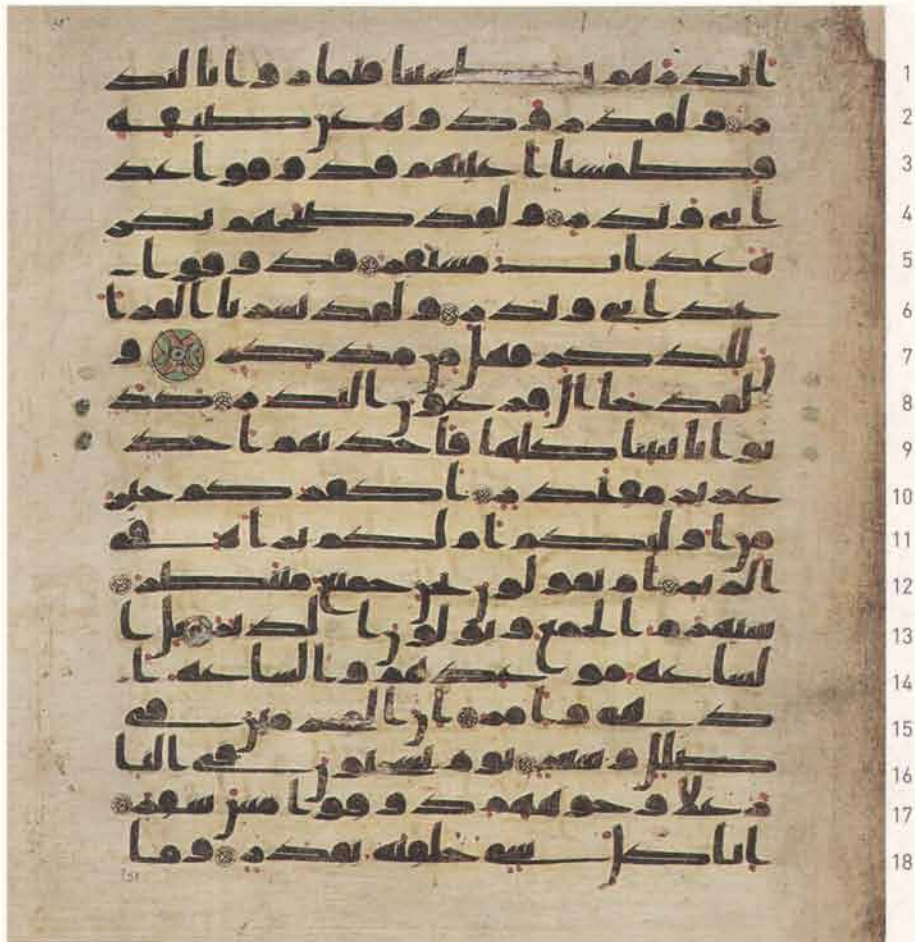 انذرهم بطشتنا فتماروا بالنذ 1
ر ولقد رودوه عن ضيفه 2
فطمسنا اعينهم فذوقوا عذ 3
ابي ونذر ولقد صبحهم بكر 4
ة عذاب مستقر فذوقوا 5
عذابي ونذر ولقد يسرنا القرا 6
ن للذكر فهل من مدكر و 7
لقد جا ال فرعون النذر كذ 8
بوا بايتنا كلها فاخذنهم اخذ 9
عزيز مقتدر اكفركم خير 10
من اوليكم ام لكم براة في 11
الزبر ام يقولون نحن جميع منتصر 12
سيهزم الجمع ويولون الدبر بل ا 13
لساعة موعدهم والساعة ا 14
دهى وامر ان المجرمين في 15
ضلل وسعر يوم يسحبون في النا 16
ر على وجوههم ذوقوا مس سقر 17
انا كل شي خلقنه بقدر وما 18